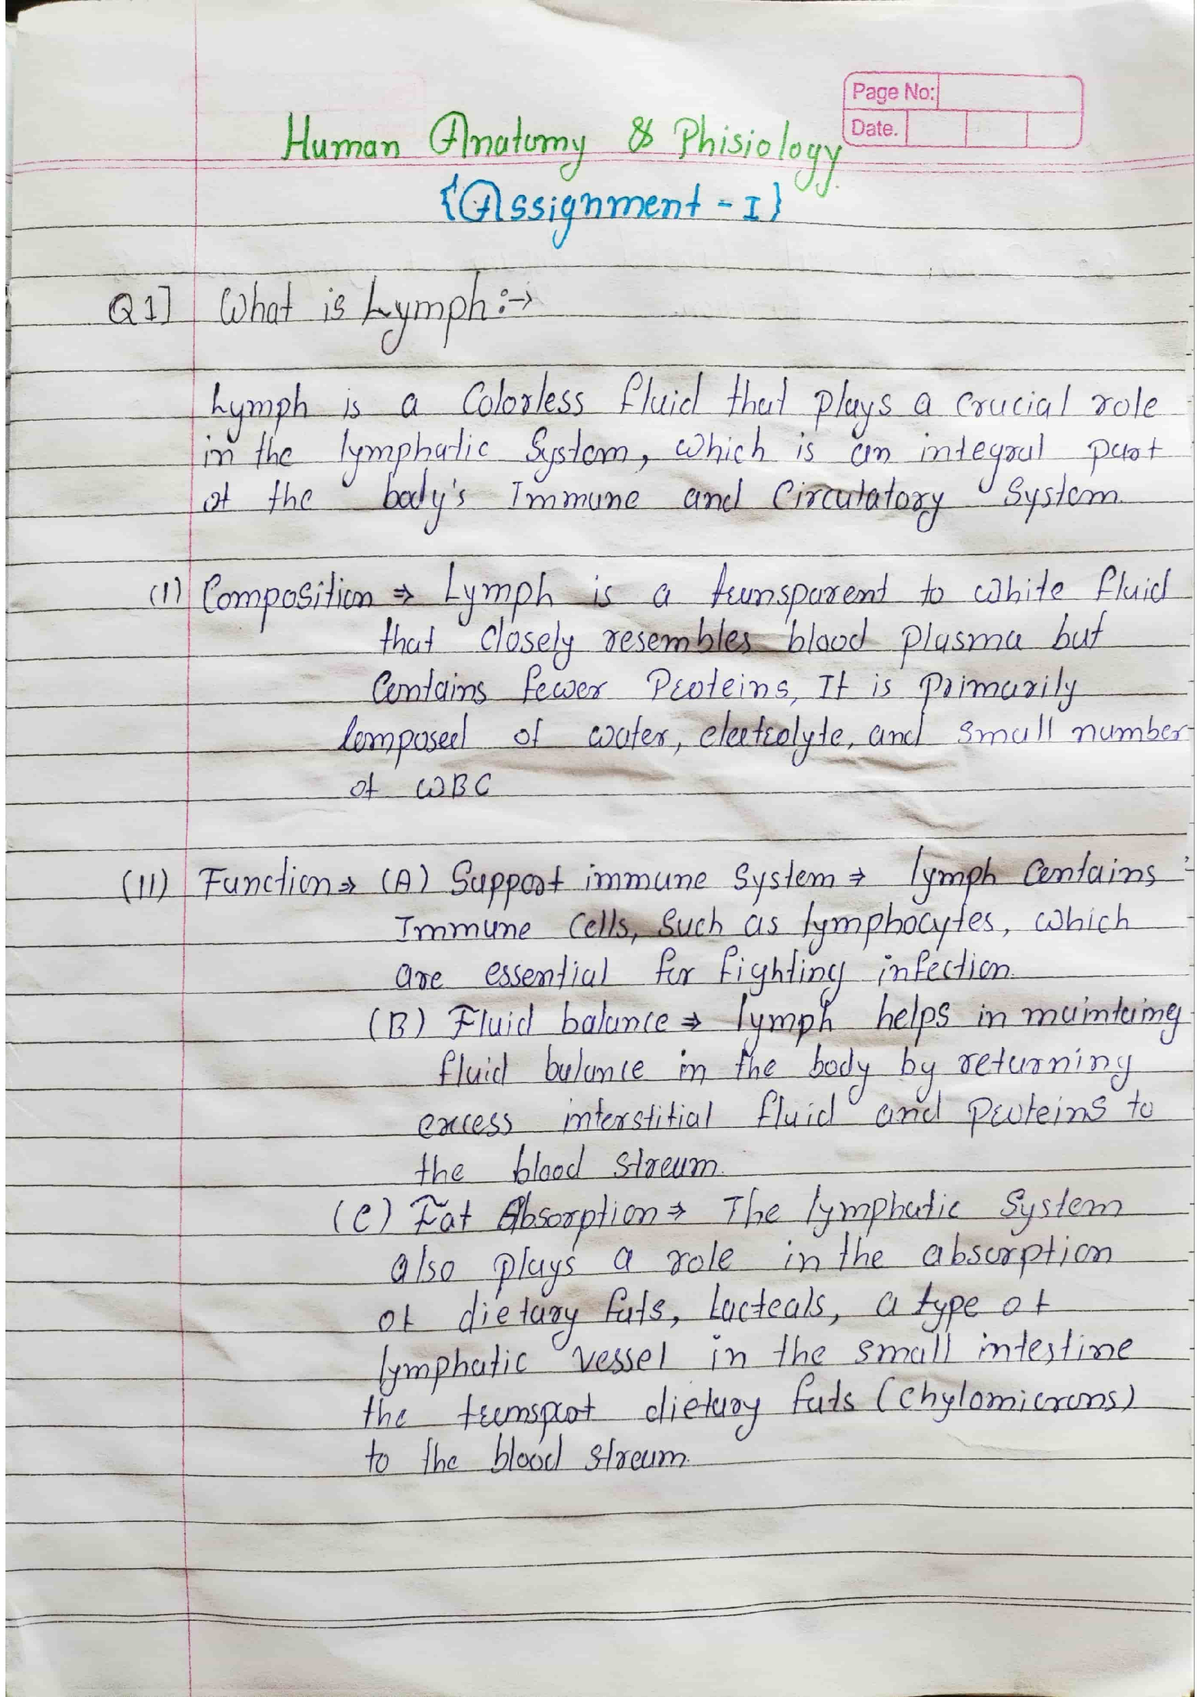 Page No:
Date.
Human Anatomy & Phisiology
{Assignment - I}
Q1] What is Lymph :→
Lymph is a Colorless fluid that plays a crucial role
in the lymphatic System, which is an integral part
of the body's Immune and Circulatory System.
(I) Composition ⇒ Lymph is a transparent to white fluid
that closely resembles blood plasma but
Contains fewer Proteins, It is primarily
Composed of water, electrolyte, and small number
of WBC
(II) Function ⇒ (A) Support immune System ⇒ lymph Contains
Immune Cells, Such as lymphocytes, which
are essential for fighting infection.
(B) Fluid balance ⇒ lymph helps in maintaing
fluid balance in the body by returning
excess interstitial fluid and Proteins to
the blood stream.
(C) Fat Absorption ⇒ The lymphatic System
also plays a role in the absorption
of dietary fats, Lacteals, a type of
lymphatic vessel in the small intestine
the transport dietary fats (chylomicrons)
to the blood stream.